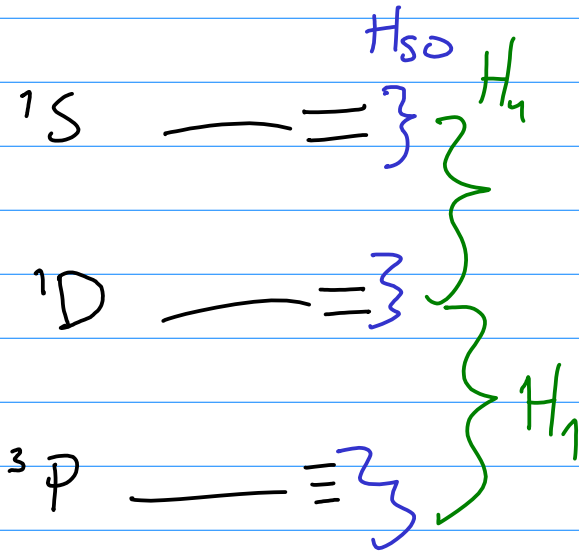 H_SO
H_1
¹S
¹D
H_1
³P